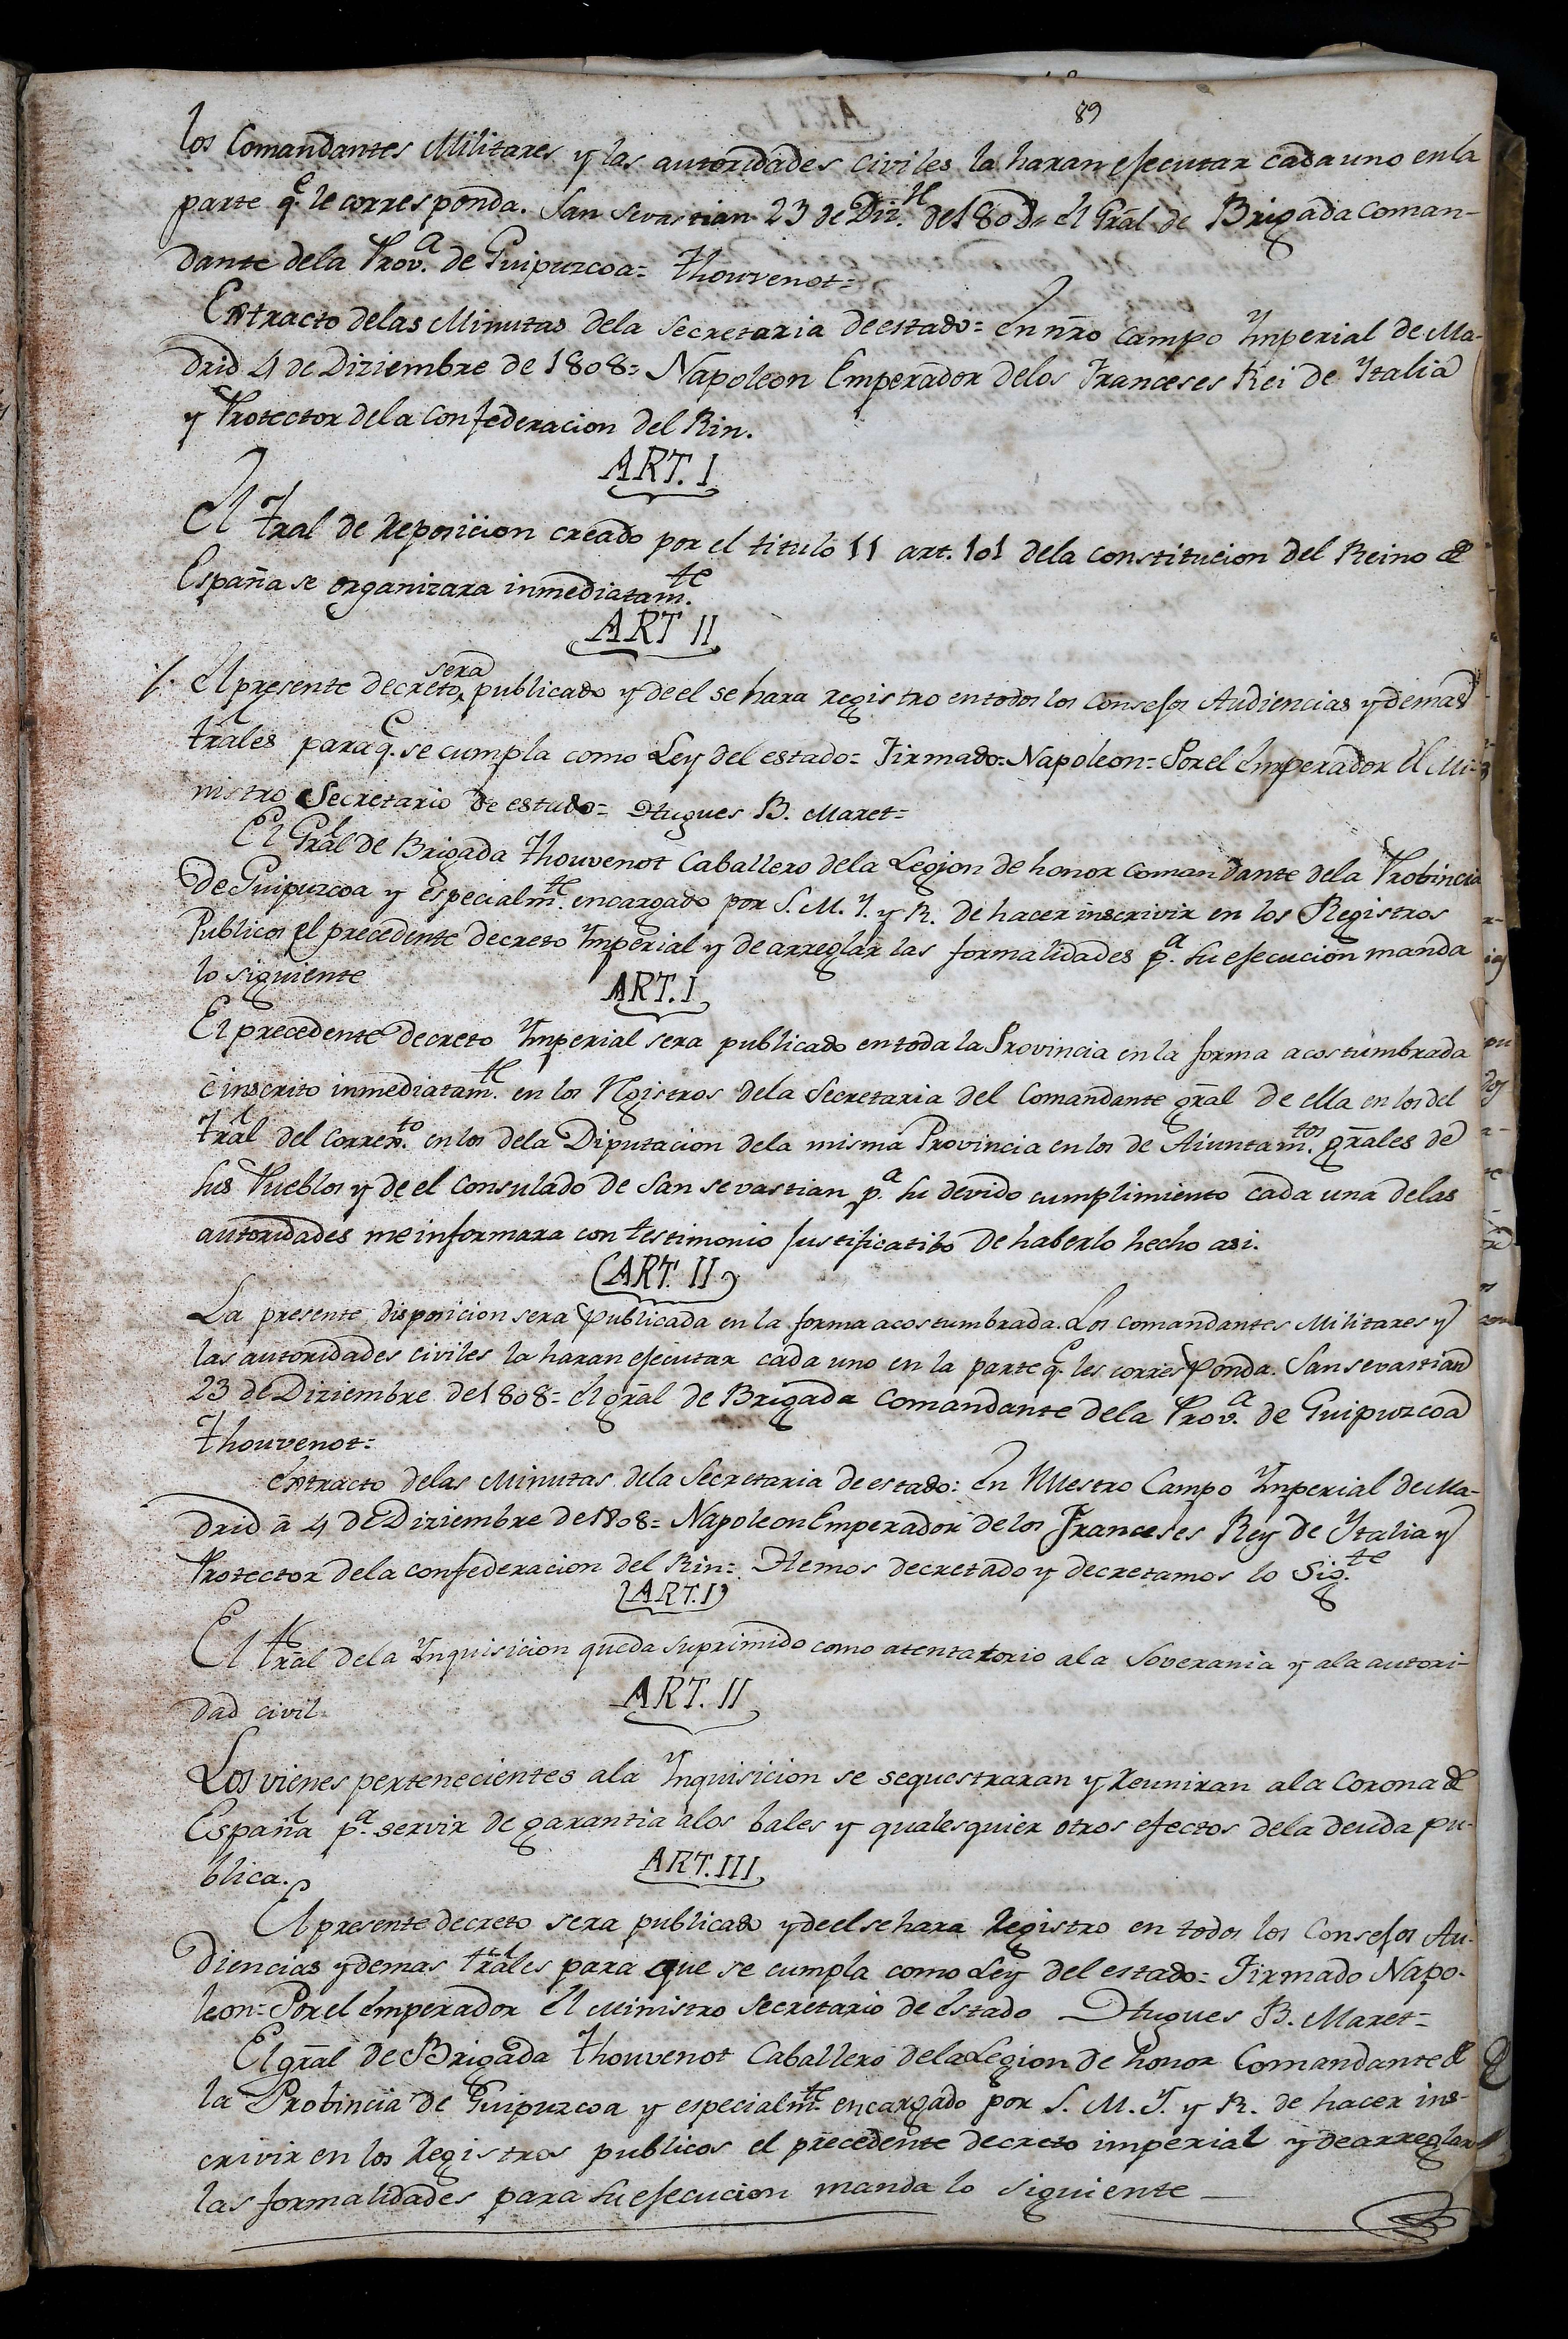 89
los Comandantes Militares y las autoridades civiles la haran ejecutar cada uno en la
parte q.e le corresponda. San Sevastian 23 de Diz.re de 1808= el Grãl de Brigada Coman-
dante dela Prov.a de Guipuzcoa= Thouvenot=
Extracto delas Minutas dela Secretaria de estado= En nr̃o Campo Ymperial de Ma-
drid 4 de Diziembre de 1808= Napoleon Emperador delos Franceses Rei de Ytalia
y Protector dela confederacion del Rin.
ART. I
El Tral de Reposicion creado por el titulo 11 art. 101 dela constitucion del Reino de
España se organizara inmediatam.te
ART II
/. El presente decreto sera publicado y de el se hara registro en todos los Consejos Audiencias y demas
trãles para q.e se cumpla como Ley del estado= Firmado= Napoleon= Por el Emperador El Mi-
nistro Secretario de estado= Hugues B. Maret=
El Grãl de Brigada Thouvenot Caballero dela Legion de honor comandante dela Probincia
de Guipuzcoa y especialm.te encargado por S. M. Y. y R. de hacer inscrivir en los Registros
Publicos el precedente decreto Ymperial y de arreglar las formalidades p.a su ejecucion manda
lo siguiente
ART. I
El precedente decreto Ymperial sera publicado en toda la Provincia en la forma acostumbrada
è inscrito inmediatam.te en los Rgistros dela Secretaria del Comandante grãl de ella en los del
Trãl del Corren.to en los dela Diputacion dela misma Provincia en los de Aiuntam.tos grãles de
sus Pueblos y de el Consulado de San sevastian p.a su devido cumplimiento cada una delas
autoridades me informara con testimonio justificatibo de haberlo hecho asi.
ART. II
La presente disposicion sera publicada en la forma acostumbrada. Los comandantes Militares y
las autoridades civiles la haran ejecutar cada uno en la parte q.e les corresponda. San sevastian
23 de Diziembre de 1808= el grãl de Brigada Comandante dela Prov.a de Guipuzcoa
Thouvenot=
Extracto delas Minutas dela Secretaria de estado= En Nuestro Campo Ymperial de Ma-
drid â 4 de Diziembre de 1808= Napoleon Emperador delos Franceses Rey de Ytalia y
Protector dela confederacion del Rin= Hemos decretado y decretamos lo Sig.te
ART. I
El trãl dela Ynquisicion queda suprimido como atentatorio ala Soverania y ala autori-
dad civil.
ART. II
Los vienes pertenecientes ala Ynquisicion se sequestraran y Reuniran ala Corona de
España p.a servir de garantia alos bales y qualesquier otros efectos dela deuda pu-
blica.
ART. III
El presente decreto sera publicado y de el se hara Registro en todos los Consejos Au-
diencias y demas trãles para que se cumpla como Ley del estado= Firmado Napo-
leon= Por el Emperador El Ministro Secretario de Estado Hugues B. Maret=
El grãl de Brigada Thouvenot Caballero dela Legion de honor Comandante de
la Probincia de Guipuzcoa y especialm.te encargado por S. M. Y. y R. de hacer ins-
crivir en los Registros publicos el precedente decreto imperial y de arreglar
las formalidades para su ejecucion manda lo siguiente